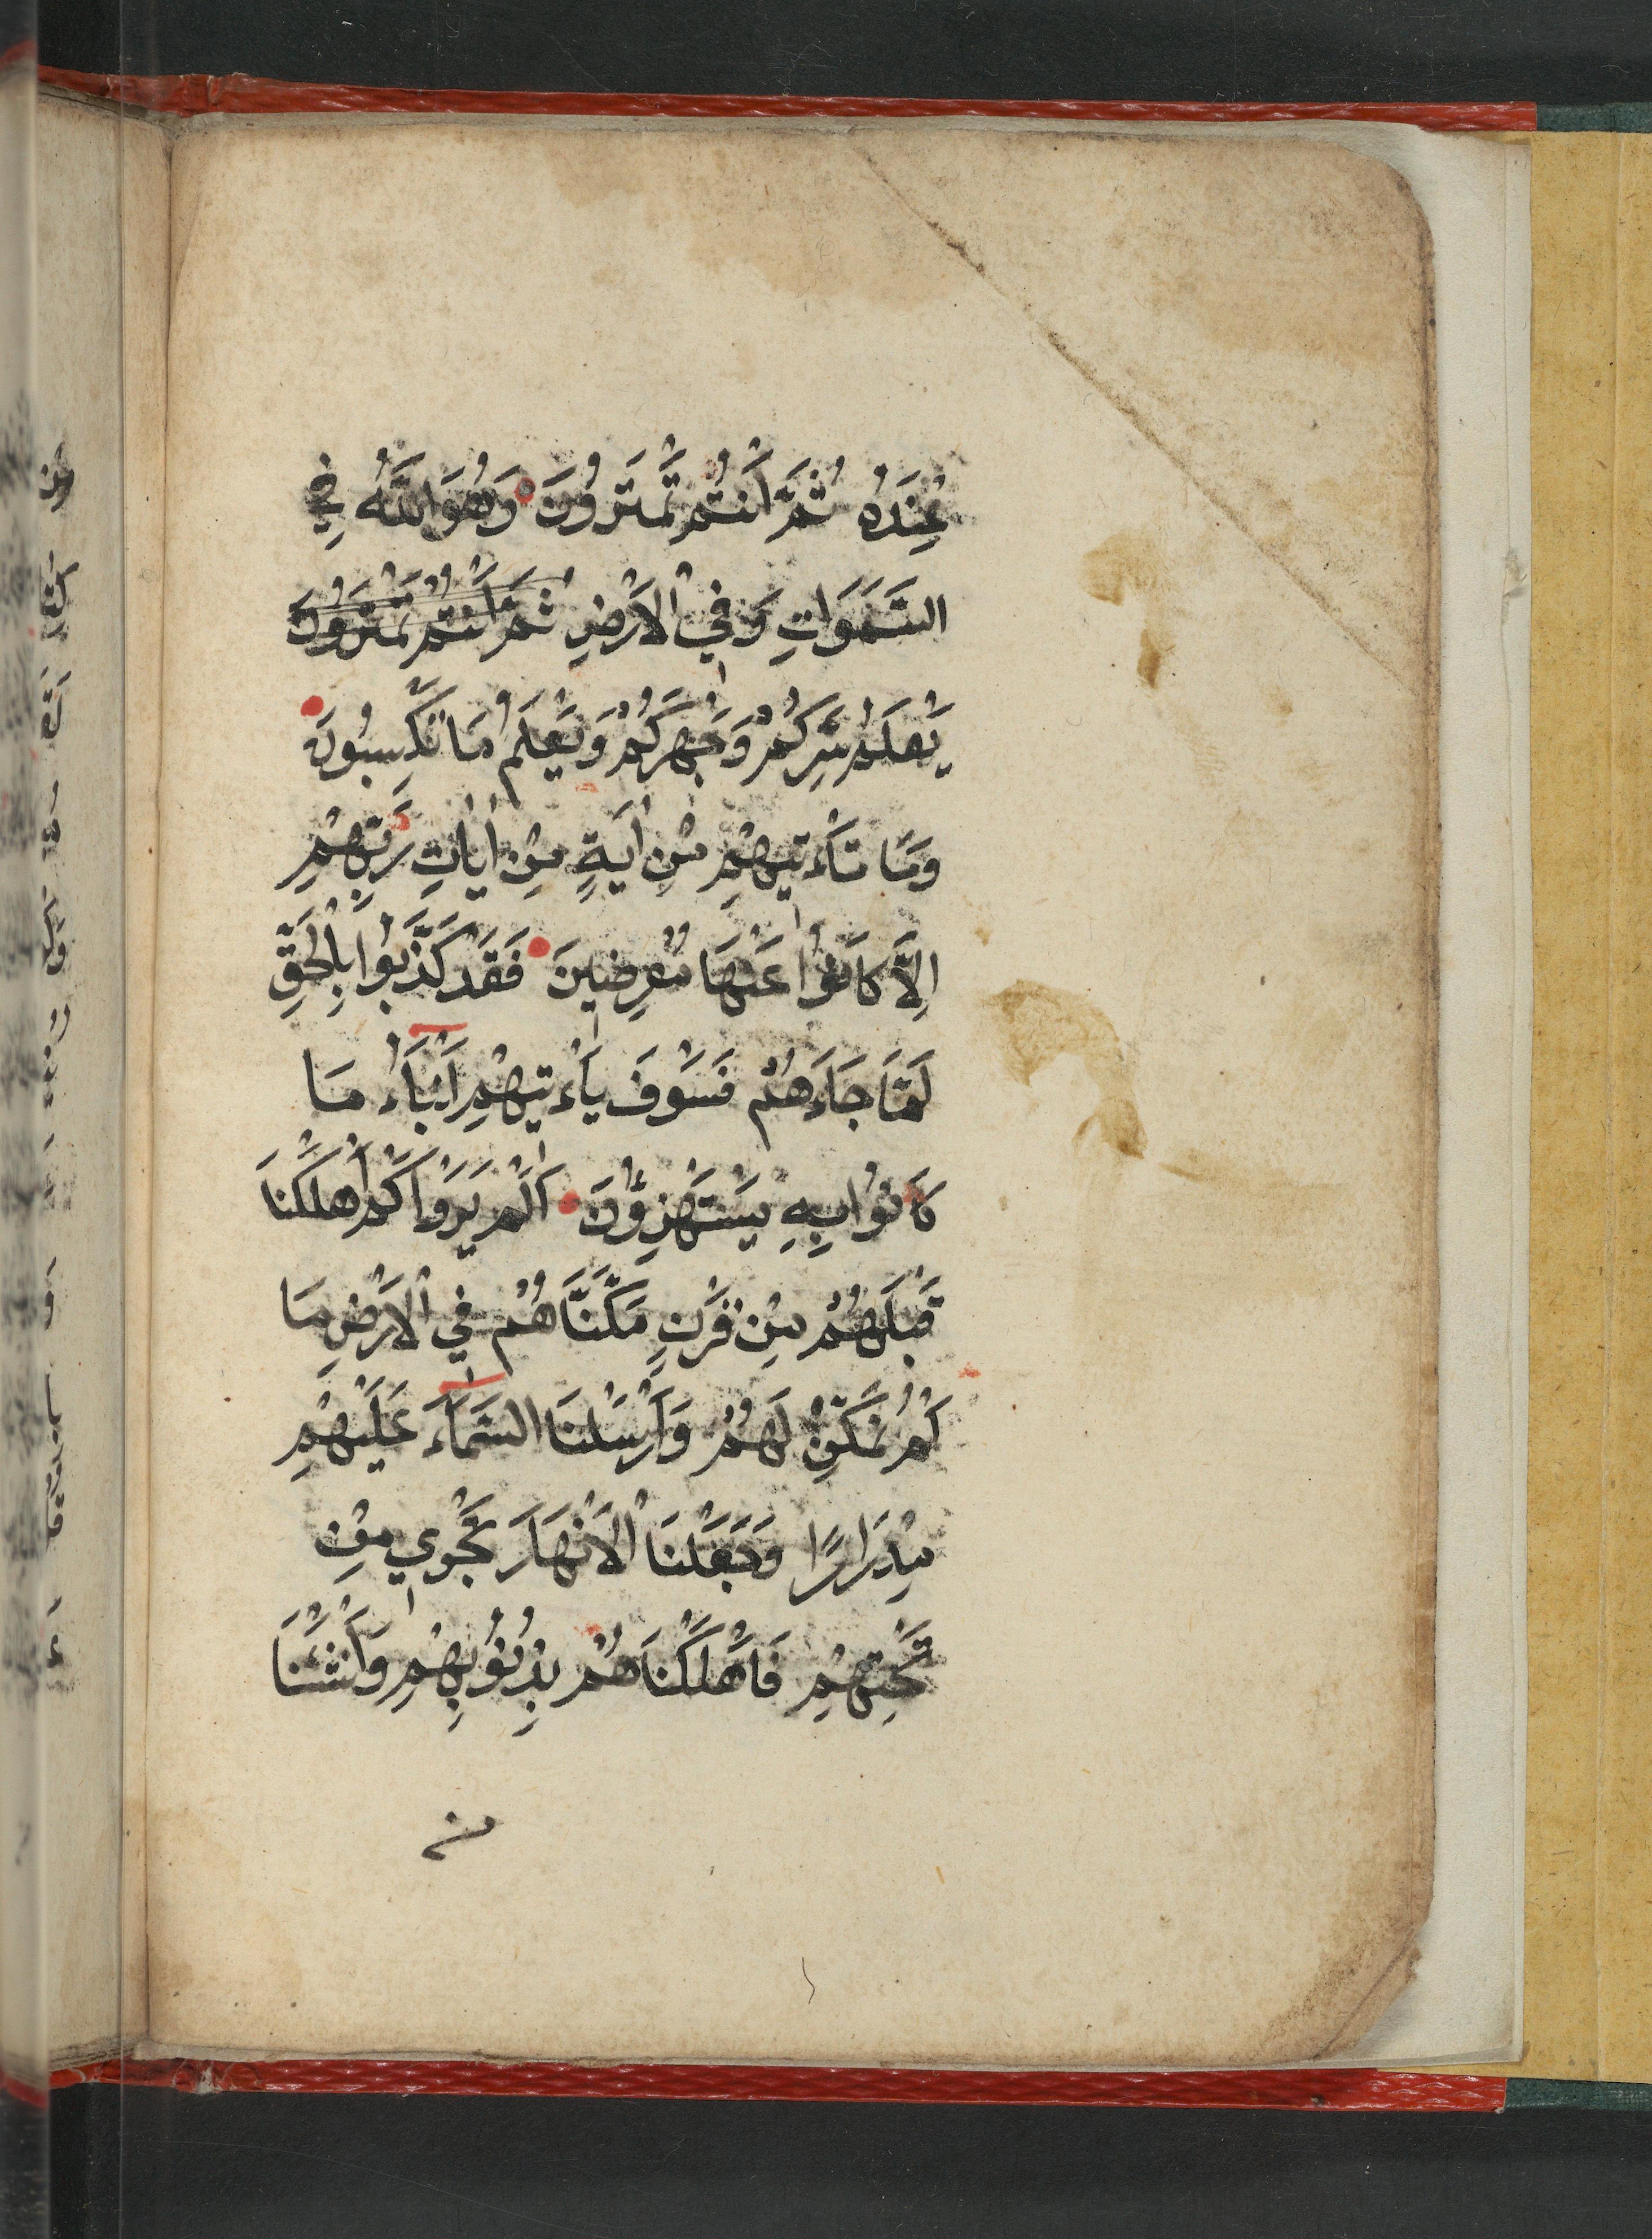 عِنْدَهُ ثُمَّ أَنْتُمْ تَمْتَرُونَ وَهُوَ اللَّهُ فِي
السَّمَوَاتِ وَفِي الْأَرْضِ ثُمَّ أَنْتُمْ تَمْتَرُونَ
يَعْلَمُ سِرَّكُمْ وَجَهْرَكُمْ وَيَعْلَمُ مَا تَكْسِبُونَ
وَمَا تَأْتِيهِمْ مِنْ اٰيَةٍ مِنْ اٰيَاتِ رَبِّهِمْ
اِلَّا كَانُوْا عَنْهَا مُعْرِضِينَ فَقَدْ كَذَّبُوْا بِالْحَقِّ
لَمَّا جَاءَهُمْ فَسَوْفَ يَأْتِيهِمْ أَنْبَاءُ مَا
كَانُوْا بِهِ يَسْتَهْزِؤُنَ أَلَمْ يَرَوْا كَمْ أَهْلَكْنَا
قَبْلَهُمْ مِنْ قَرْنٍ مَكَّنَّاهُمْ فِي الْأَرْضِ مَا
لَمْ نُمَكِّنْ لَهُمْ وَأَرْسَلْنَا السَّمَاءَ عَلَيْهِمْ
مِدْرَارًا وَجَعَلْنَا الْأَنْهَارَ تَجْرِي مِنْ
تَحْتِهِمْ فَأَهْلَكْنَاهُمْ بِذُنُوبِهِمْ وَأَنْشَئْنَا
من